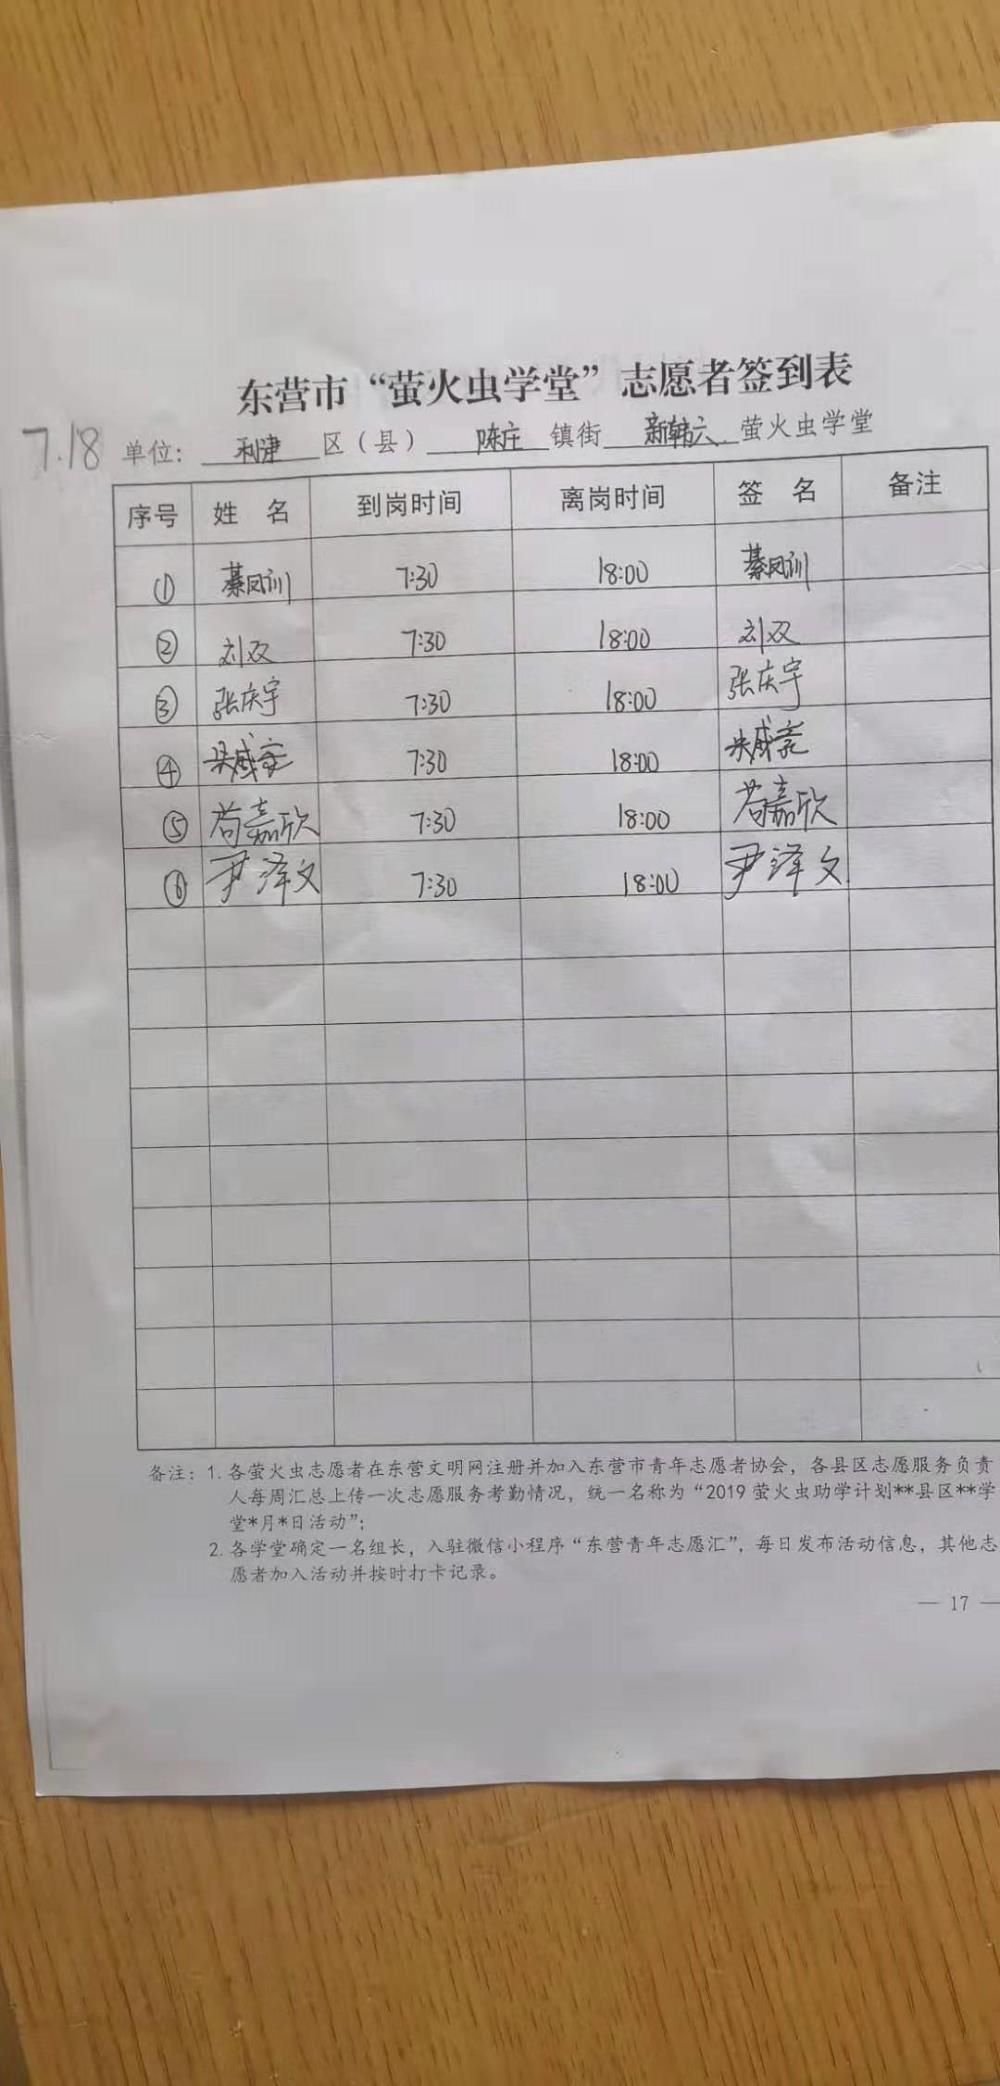 东营市“萤火虫学堂”志愿者签到表
7.18 单位：利津区（县）陈庄镇街新韩六萤火虫学堂
序号 姓名 到岗时间 离岗时间 签名 备注
① 綦凤训 7:30 18:00 綦凤训
② 刘双 7:30 18:00 刘双
③ 张庆宇 7:30 18:00 张庆宇
④ 7:30 18:00
⑤ 苟嘉欣 7:30 18:00 苟嘉欣
⑥ 尹泽文 7:30 18:00 尹泽文
备注：1. 各萤火虫志愿者在东营文明网注册并加入东营市青年志愿者协会，各县区志愿服务负责
人每周汇总上传一次志愿服务考勤情况，统一名称为“2019 萤火虫助学计划**县区**学
堂*月*日活动”；
2. 各学堂确定一名组长，入驻微信小程序“东营青年志愿汇”，每日发布活动信息，其他志
愿者加入活动并按时打卡记录。
— 17 —